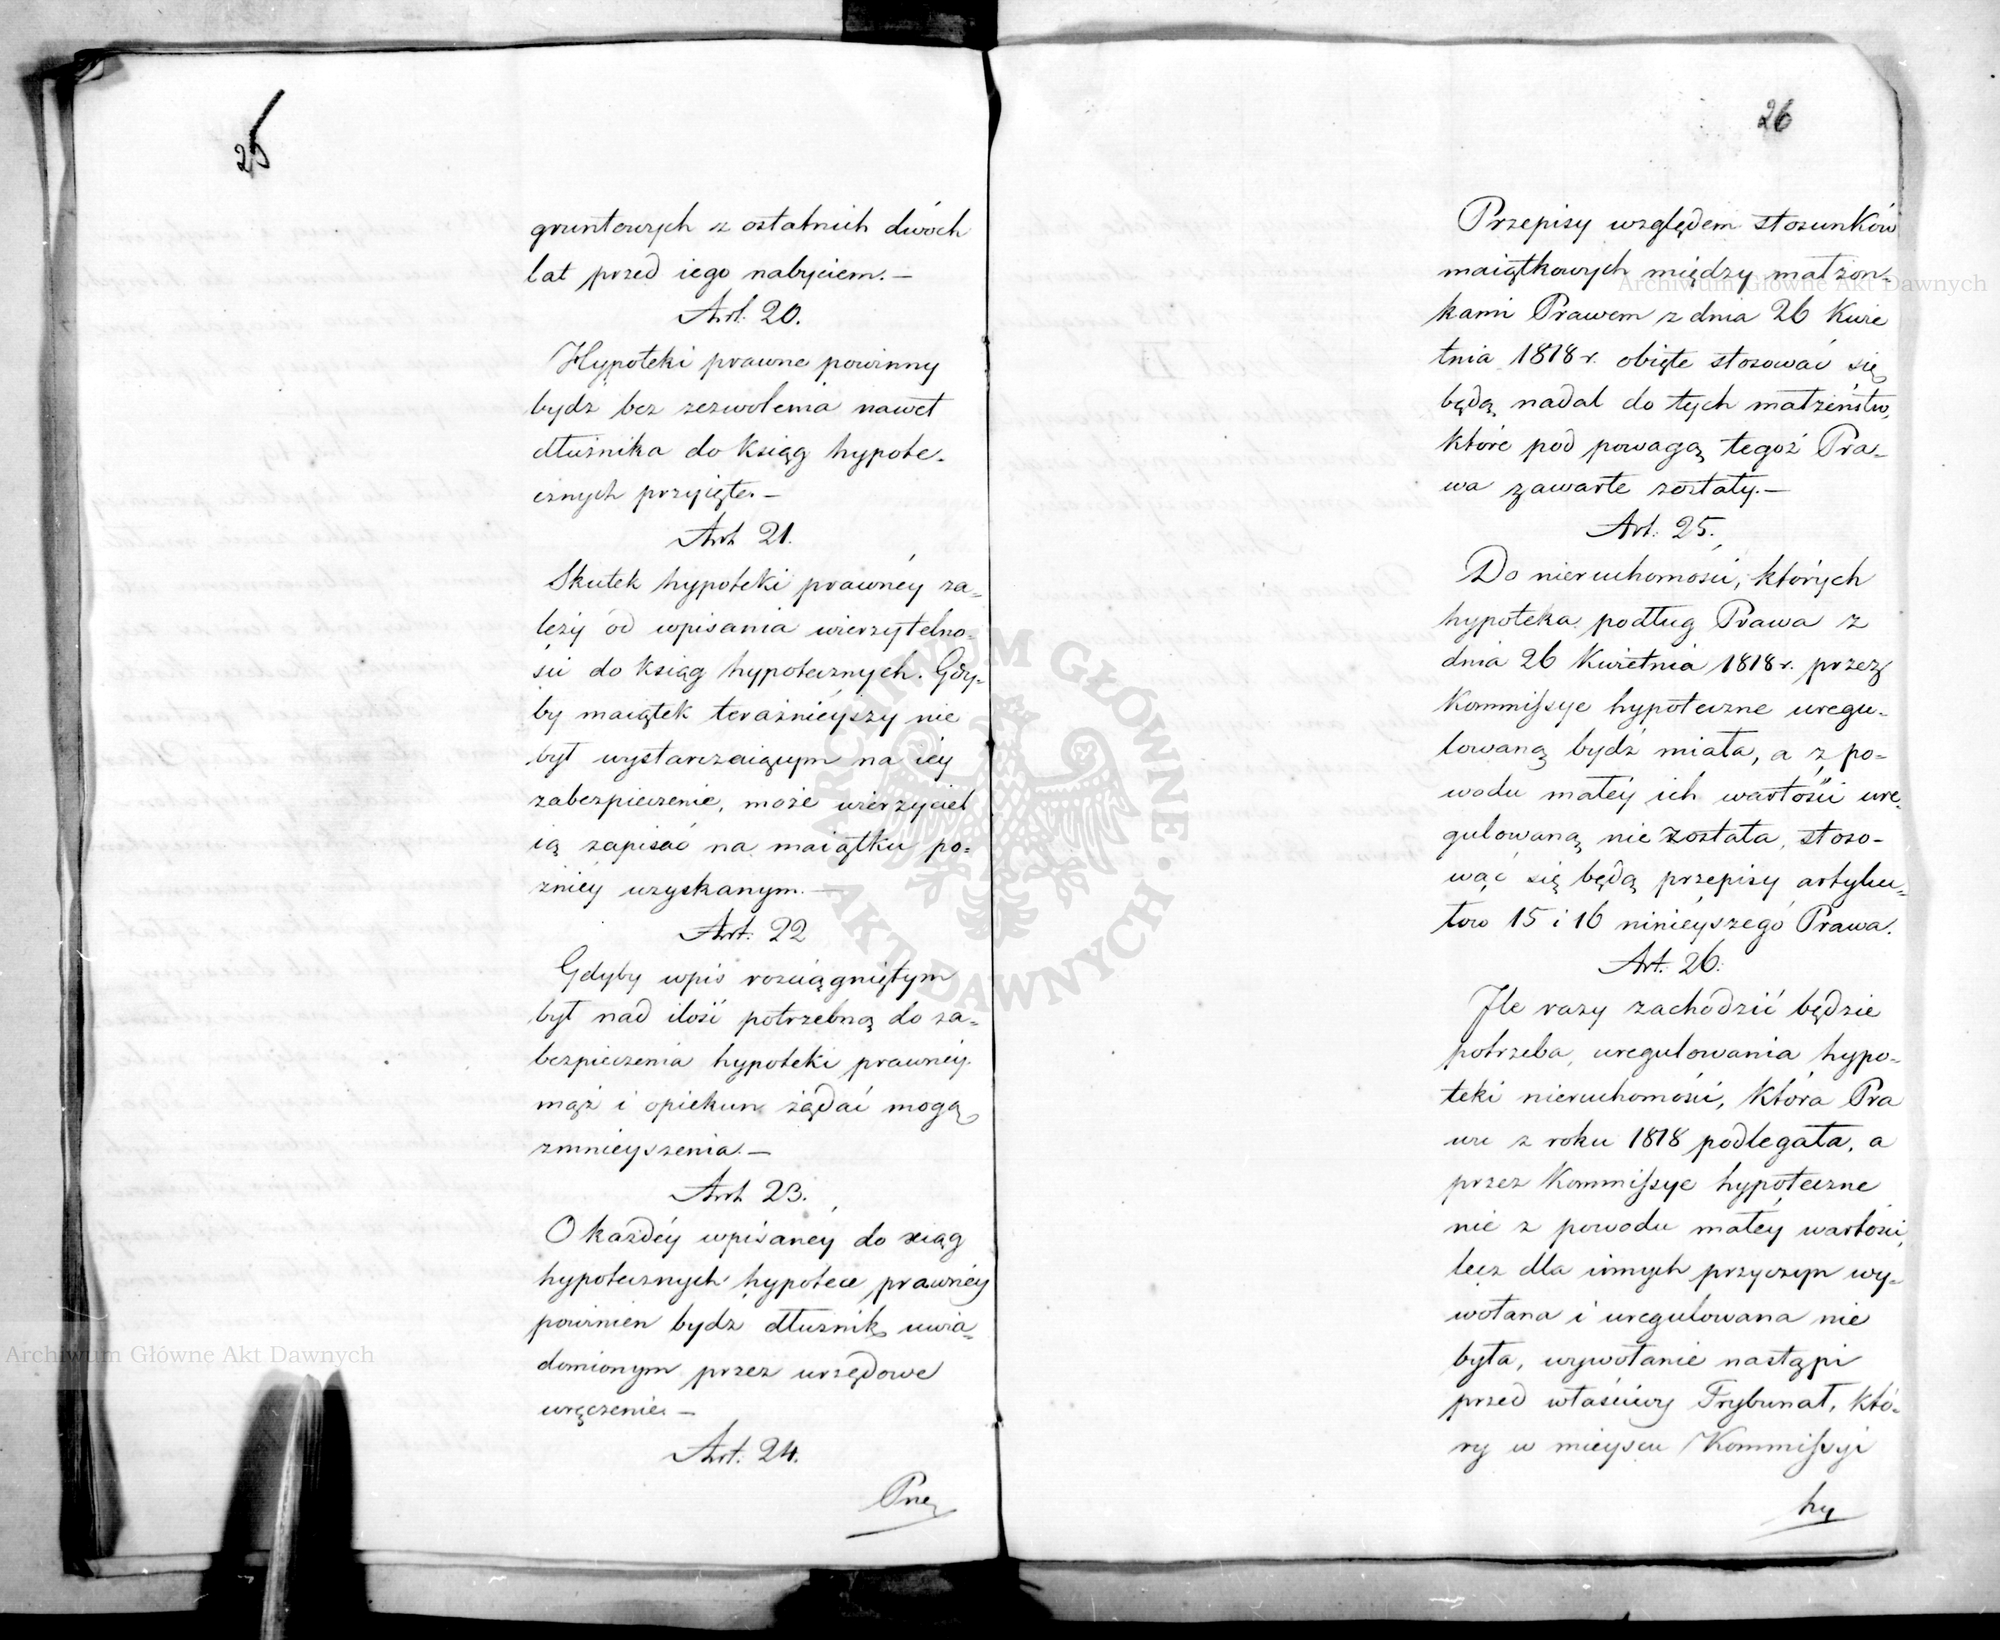 25
gruntowych z ostatnich dwóch
lat przed iego nabyciem.—
Art. 20.
Hypoteki prawne powinny
bydz bez zezwolenia nawet
dłużnika do Ksiąg hypote-
cznych przyięte.—
Art 21.
Skutek hypoteki prawnéy za-
leży od wpisania wierzytelno-
ści do Ksiąg hypotecznych. Gdy-
by maiątek teraźnieyszy nie
był wystarczaiącym na iey
zabezpieczenie, może wierzyciel
ią zapisać na maiątku po-
źniey uzyskanym.—
Art. 22
Gdyby wpis rozciągniętym
był nad ilość potrzebną do za-
bezpieczenia hypoteki prawnéy.
mąż i opiekun żądać mogą
zmnieyszenia.—
Art 23.
O każdéy wpisanéy do xiąg
hypotecznych hypotece prawnéy
powinien bydz dłużnik uwia-
domionym przez urzędowe
wręczenie.—
Art. 24.
Prze
26
Przepisy względem stosunków
maiątkowych między małżon-
kami Prawem z dnia 26 Kwie
tnia 1818 r. obięte stosować się
będą nadal do tych małżeństw,
które pod powagą tegoż Pra-
wa zawarte zostały.—
Art. 25.
Do nieruchomości, których
hypoteka podług Prawa z
dnia 26 Kwietnia 1818 r. przez
Kommissye hypoteczne uregu-
lowaną bydź miała, a z po-
wodu małéy ich wartości ure-
gulowaną nie została, stoso-
wać się będą przepisy artyku-
łów 15 i 16 ninieyszego Prawa.
Art. 26.
Ile razy zachodzić będzie
potrzeba uregulowania hypo-
teki nieruchomości, która Pra
wu z roku 1818 podlegała, a
przez Kommissye hypoteczne
nie z powodu małéy wartości,
lecz dla innych przyczyn wy-
wołana i uregulowana nie
była, wywołanie nastąpi
przed właściwy Trybunał, któ-
ry w mieyscu Kommissyi
hy
Archiwum Główne Akt Dawnych
Archiwum Główne Akt Dawnych
ARCHIWUM GŁÓWNE AKT DAWNYCH